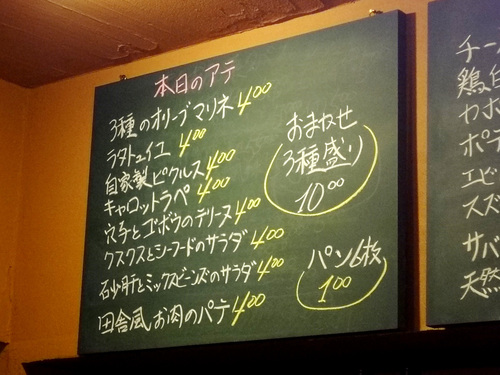 本日のアテ
3種のオリーブマリネ 400
ラタトュイユ 400
自家製ピクルス 400
キャロットラペ 400
穴子とゴボウのテリーヌ 400
クスクスとシーフードのサラダ 400
砂肝とミックスビーンズのサラダ 400
田舎風お肉のパテ 400
おまかせ
3種盛り
1000
パン6枚
100
チー
鶏白
カボ
ポテ
エビ
スズ
サバ
天然